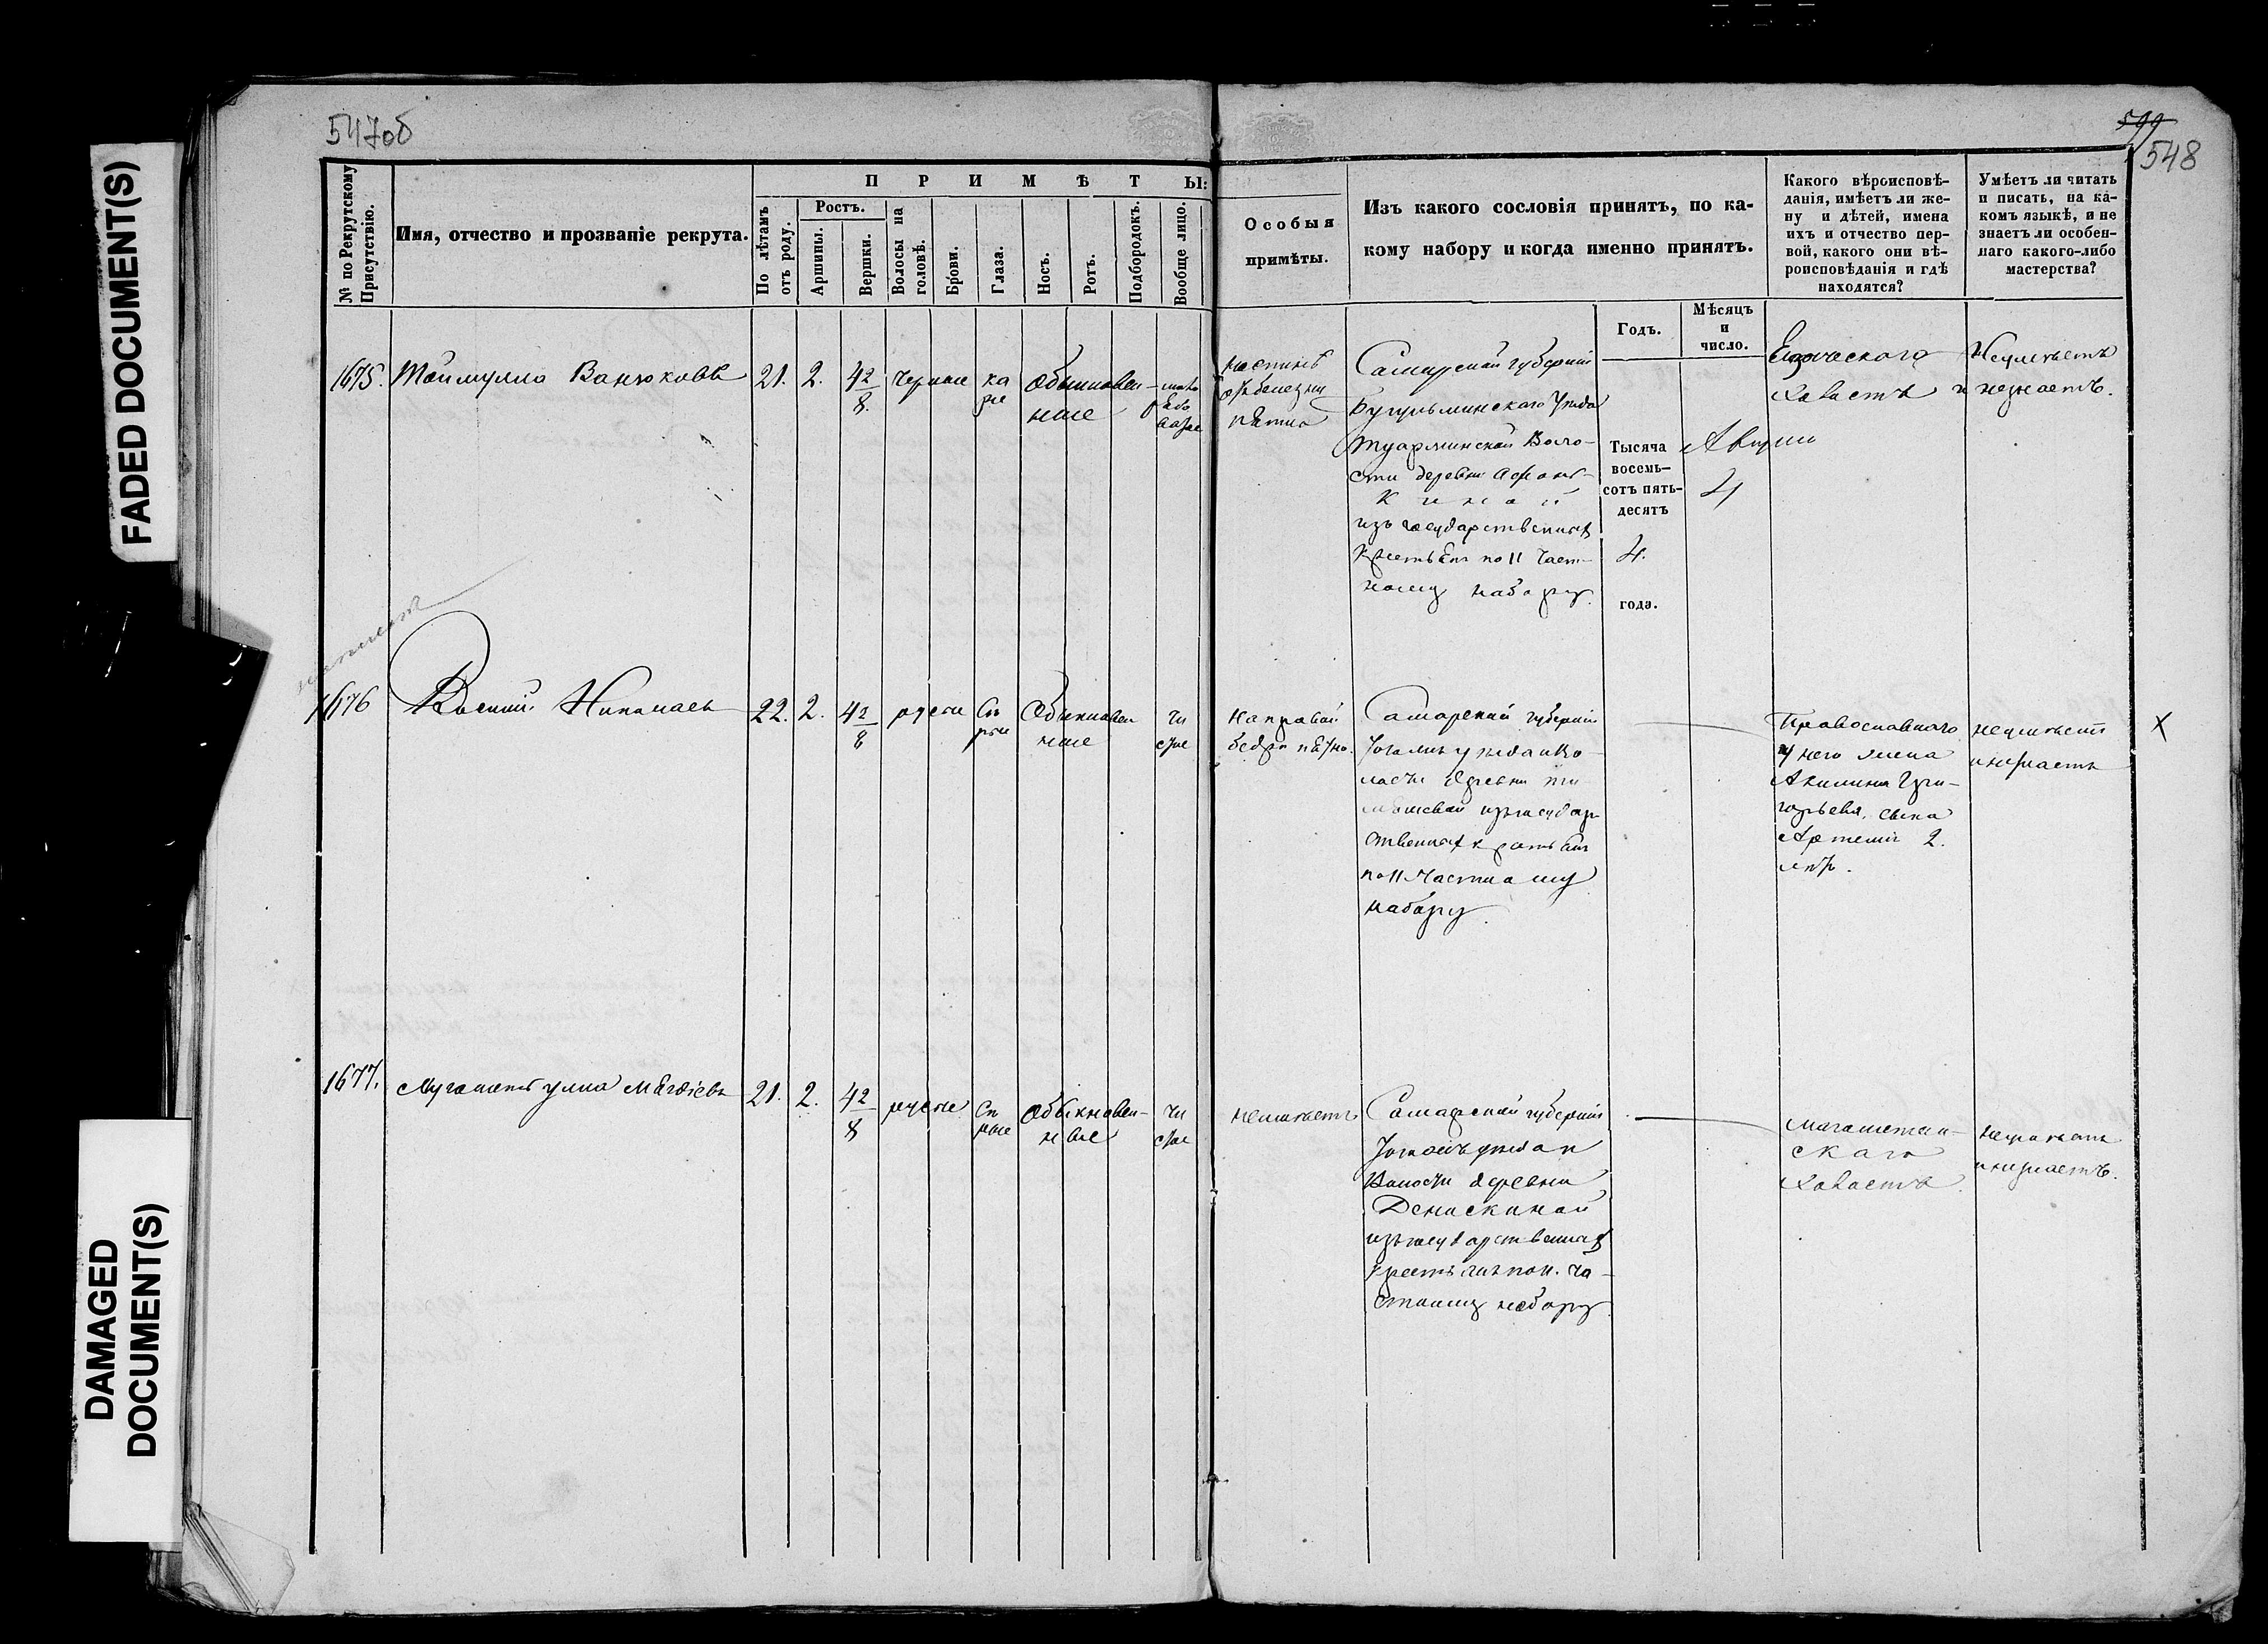 547об
599
548
FADED DOCUMENT(S)
DAMAGED
DOCUMENT(S)
№ по Рекрутскому
Присутствію.
Имя, отчество и прозваніе рекрута.
П Р И М Ѣ Т Ы:
По лѣтамъ
отъ роду.
Ростъ.
Аршины.
Вершки.
Волосы на
головѣ.
Брови.
Глаза.
Носъ.
Ротъ.
Подбородокъ.
Вообще лицо.
Особыя
примѣты.
Изъ какого сословія принятъ, по ка-
кому набору и когда именно принятъ.
Годъ.
Мѣсяцъ
и
число.
Какого вѣроисповѣ-
данія, имѣетъ ли же-
ну и дѣтей, имена
ихъ и отчество пер-
вой, какого они вѣ-
роисповѣданія и гдѣ
находятся?
Умѣетъ ли читать
и писать, на ка-
комъ языкѣ, и не
знаетъ ли особен-
наго какого-либо
мастерства?
1675. Тоймулла Ванюковъ 21. 2. 4 2/8. черные ка
ріе
Обыкновен-
ные
на спинѣ
отъ болезни
пѣтна
Самарской губерніи
Бугульминскаго Уезда
Туарминской Воло-
сти деревни
изъ государственныхъ
крестьянъ по 11 част-
ному набору.
Тысяча
восемь-
сотъ пять-
десятъ
4.
года.
4
Языческаго
Холостъ и
Неумѣетъ
незнаетъ.
1676 Николаевъ 22. 2. 4 2/8 русые Сѣ
рые
Обыкновен
ные
чи
стое
На правой
бедрѣ пѣтно.
Самарской губерніи
деревни
изъ государ
ственныхъ крестьянъ
по 11 частному
набору.
Православнаго
у него жена
Акилина Гри-
горьева, сына
Артемій 2.
лѣтъ.
неумѣетъ
и незнаетъ
X
1677. 21. 2. 4 2/8 русые Сѣ
рые
Обыкновен-
ные
чи
стое
неимѣетъ
Самарской губерніи
Волости деревни
Денискиной
изъ государственныхъ
крестьянъ по 11. ча-
стному набору.
магометан-
скаго
Холостъ.
неумѣетъ
и незнаетъ.